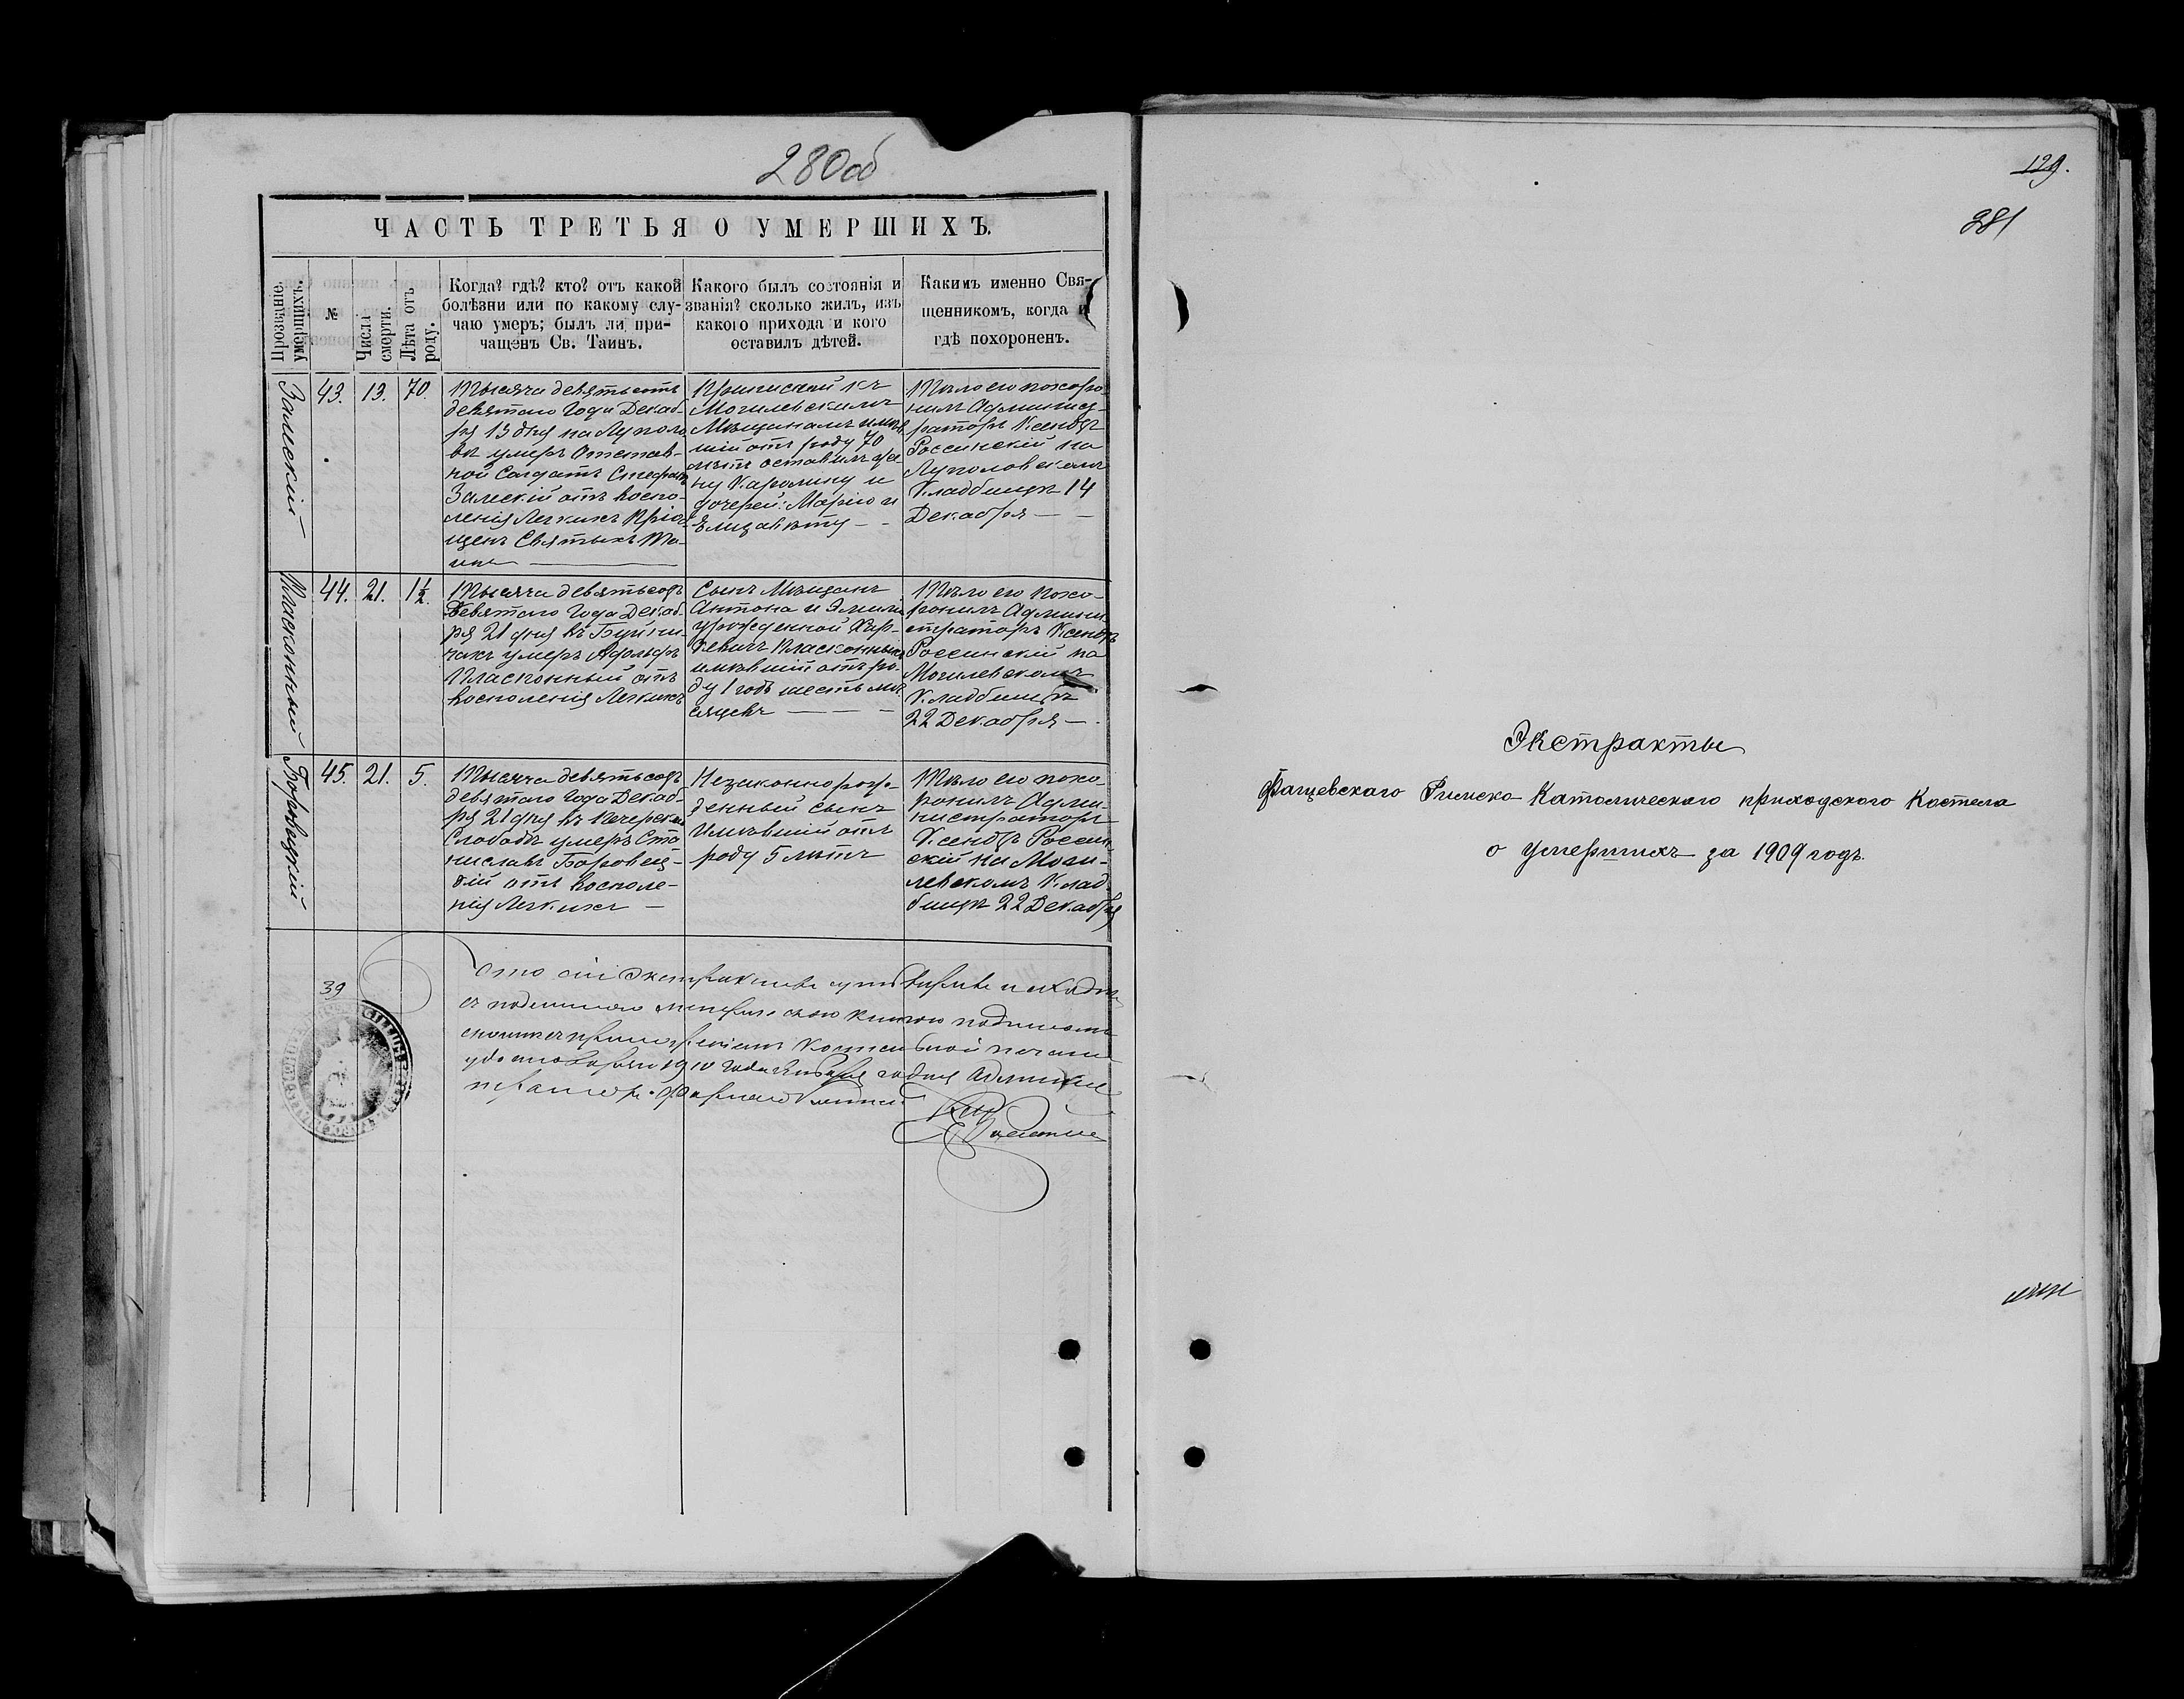 280об
ЧАСТЬ ТРЕТЬЯ О УМЕРШИХЪ.
Прозваніе умершихъ.
№
Числа смерти.
Лѣта отъ роду.
Когда? гдѣ? кто? отъ какой
болѣзни или по какому слу-
чаю умеръ; былъ ли при-
чащенъ Св. Таинъ.
Какого былъ состоянія и
званія? сколько жилъ, изъ
какого прихода и кого
оставилъ дѣтей.
Какимъ именно Свя-
щенникомъ, когда и
гдѣ похороненъ.
Залескій
43.
13.
70.
Тысяча девятьсотъ
девятаго Года Декаб-
ря 13 дня на Луполо
вѣ умеръ Отстав-
ной Солдатъ Стефанъ
Залескій отъ воспо-
ленія Легкихъ Пріоб
щенъ Святыхъ Та-
инъ
Приписаный къ
Могилевскимъ
Мѣщанамъ имѣв
шій отъ роду 70
лѣтъ оставилъ же
ну Каролину и
дочерей: Марію и
Елизавѣту
Тѣло его похоро
нилъ Админист-
раторъ Ксендзъ
Россинскій на
Луполовскомъ
Кладбищѣ 14
Декабря
Пласконный
44.
21.
1½.
Тысяча девятьсотъ
Девятаго Года Декаб
ря 21 дня въ Буйни-
чахъ умеръ Адольфъ
Пласконный отъ
восполенія Легкихъ
Сынъ Мѣщанъ
Антона и Эмиліи
урожденной Хар-
кевичъ Пласконныхъ
имѣвшій отъ ро-
ду 1 годъ шесть мѣ
сяцевъ
Тѣло его похо-
ронилъ Админи-
страторъ Ксендзъ
Россинскій на
Могилевскомъ
Кладбищѣ
22 Декабря
Боровецкій
45.
21.
5.
Тысяча девятьсотъ
девятаго Года Декаб-
ря 21 дня въ Печерской
Слободѣ умеръ Ста
ниславъ Боровец-
кій отъ Восполе-
нія Легкихъ
Незаконнорож-
денный сынъ
Имѣвшій отъ
роду 5 лѣтъ
Тѣло его похо-
ронилъ Адми-
нистраторъ
Ксендзъ Россин
скій на Моги-
левскомъ Клад
бищѣ 22 Декабря
39
Что сіи Экстракты вѣрны и сходны
съ подлинною книгою подписомъ
Костельной печати
1910 года
129.
281
Экстракты
Фащевскаго Римско-Католическаго приходского Костела
о умершихъ за 1909 годъ.